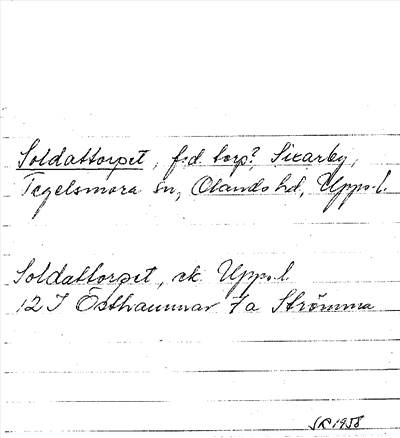 Soldattorpet, f.d. torp? Sixarby,
Tegelsmora sn, Olands hd, Upps.l.
Soldattorpet, ek Upps.l.
12 I Östhammar 7a Strömma
1958